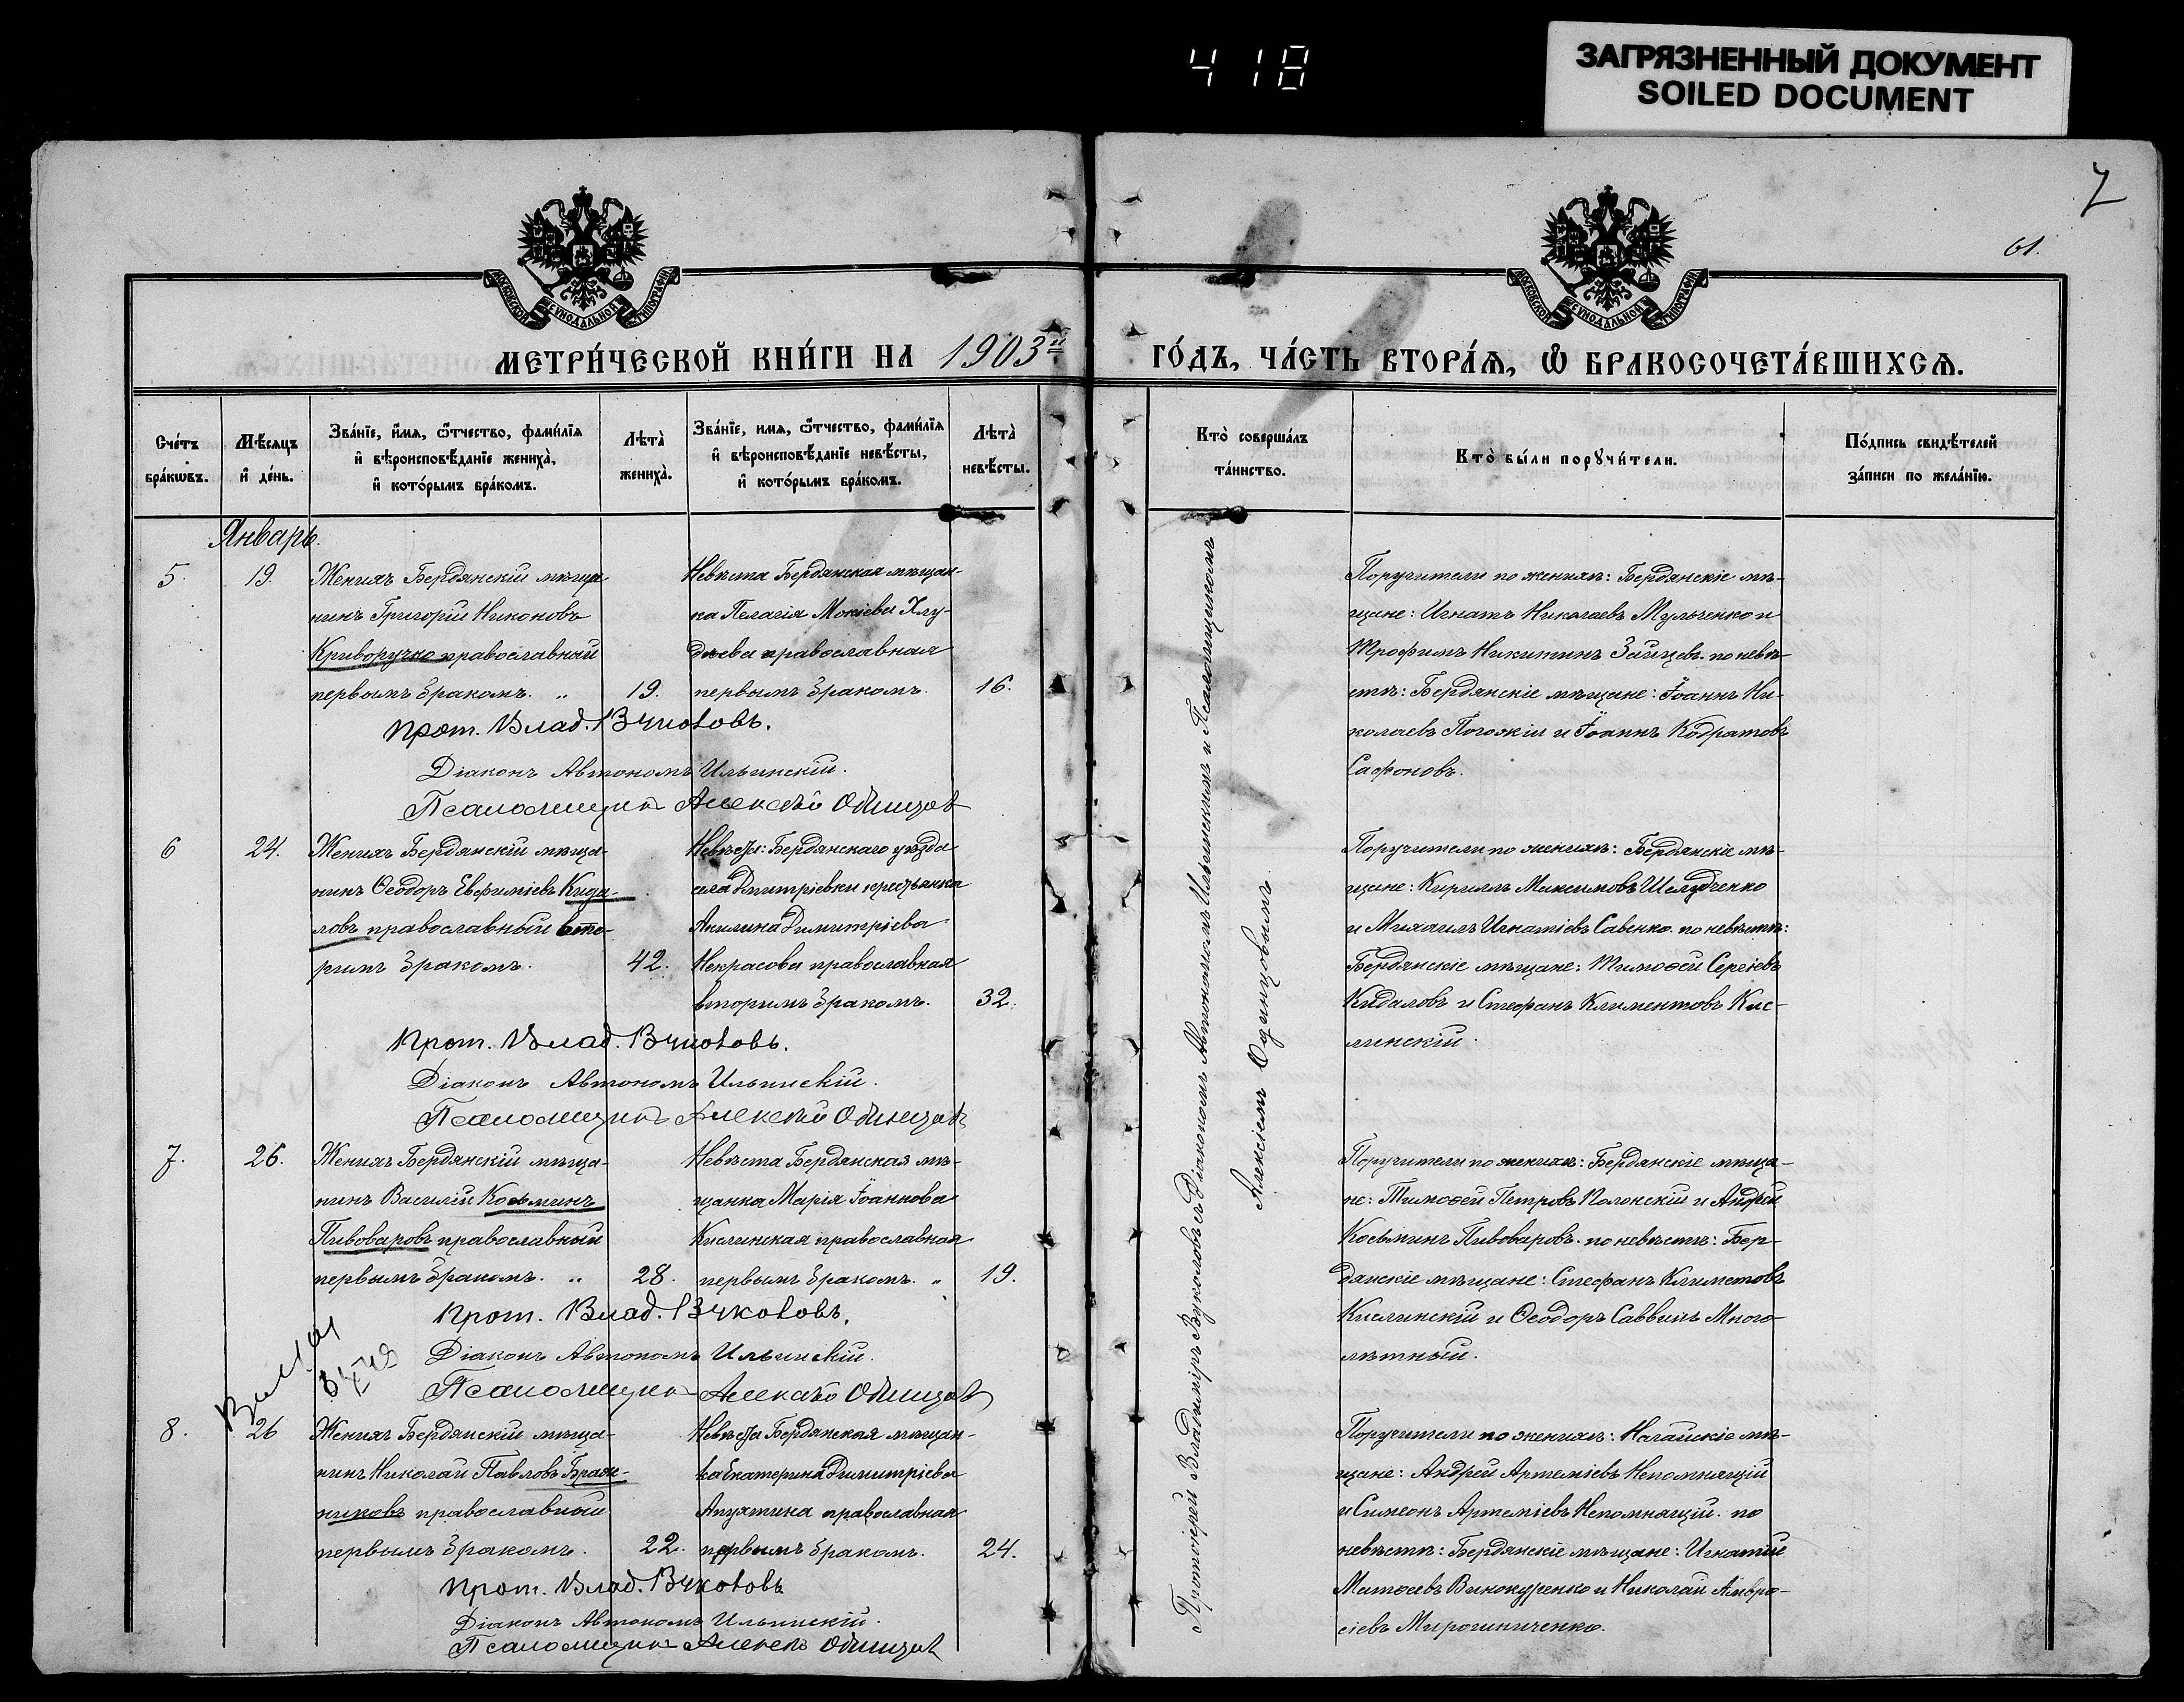 418
ЗАГРЯЗНЕННЫЙ ДОКУМЕНТ
SOILED DOCUMENT
7
61.
МОСКОВСКОЙ СѴНОДАЛЬНОЙ ТИПОГРАФІИ
МОСКОВСКОЙ СѴНОДАЛЬНОЙ ТИПОГРАФІИ
МЕТРИ́ЧЕСКОЙ КНИ́ГИ НА 1903й ГО́ДЪ, ЧА́СТЬ ВТОРА́Я, Ѡ БРАКОСОЧЕТА́ВШИХСЯ.
Сче́тъ бра́кѡвъ.
Мѣ́сяцъ и҆ де́нь.
Зва́нїе, и҆́мя, ѻ҆́тчество, фами́лїя
и҆ вѣроисповѣ́данїе жениха̀,
и҆ кото́рымъ бра́комъ.
Лѣта̀ жениха̀.
Зва́нїе, имя, ѻ҆́тчество, фами́лїя
и҆ вѣроисповѣ́данїе невѣ́сты,
и҆ кото́рымъ бра́комъ.
Лѣта̀ невѣ́сты.
Кто̀ соверша́лъ
та́инство.
Кто̀ бы́ли порꙋчи́тели.
По́дпись свидѣ́телей
за́писи по жела́нїю.
Январь.
5.
19.
Женихъ Бердянскій мѣща-
нинъ Григорій Никоновъ
Криворучко православный
первымъ бракомъ. "
19.
Невѣста Бердянская мѣщан-
ка Пелагія Мокіева Хлу-
дѣева православная
первымъ бракомъ.
16.
Поручители по женихѣ: Бердянскіе мѣ-
щане: Игнатъ Николаевъ Мульченко и
Трофимъ Никитинъ Зайцевъ. по невѣ-
стѣ: Бердянскіе мѣщане: Іоаннъ Ни-
колаевъ Погожій и Іоаннъ Кодратовъ
Сафоновъ.
Прот. Влад. Вуколовъ.
Діаконъ Автономъ Ильинскій.
Псаломщикъ Алексѣй Одинцовъ
6
24.
Женихъ Бердянскій мѣща-
нинъ Ѳеодоръ Евфиміевъ Кида-
ловъ православный вто-
рымъ бракомъ.
42.
Невѣста: Бердянскаго уѣзда
села Дмитріевки крестьянка
Акилина Димитріева
Некрасова православная
вторымъ бракомъ.
32.
Поручители по женихѣ: Бердянскіе мѣ-
щане: Кириллъ Максимовъ Шелудченко
и Михаилъ Игнатіевъ Савенко. по невѣстѣ:
Бердянскіе мѣщане: Тимоѳей Сергіевъ
Кидаловъ и Стефанъ Климентовъ Кис-
линскій.
Прот. Влад. Вуколовъ.
Діаконъ Автономъ Ильинскій.
Псаломщикъ Алексѣй Одинцовъ
7.
26.
Женихъ Бердянскій мѣща-
нинъ Василій Косьминъ
Пивоваровъ православный
первымъ бракомъ. "
28.
Невѣста Бердянская мѣ-
щанка Марія Іоаннова
Кислинская православная
первымъ бракомъ. "
19.
Поручители по женихѣ: Бердянскіе мѣща-
не: Тимоѳей Петровъ Полонскій и Андрей
Косьминъ Пивоваровъ. по невѣстѣ: Бер-
дянскіе мѣщане: Стефанъ Климетовъ
Кислинскій и Ѳеодоръ Саввинъ Много-
лѣтный.
Прот. Влад. Вуколовъ.
Діаконъ Автономъ Ильинскій.
Псаломщикъ Алексѣй Одинцовъ
8.
26
Женихъ Бердянскій мѣща-
нинъ Николай Павловъ Браж-
никовъ православный
первымъ бракомъ.
22.
Невѣста Бердянская мѣщан-
ка Екатерина Димитріева
Апухтина православная
первымъ бракомъ.
24.
Поручители по женихѣ: Ногайскіе мѣ-
щане: Андрей Артеміевъ Непомнящій
и Симеонъ Артеміевъ Непомнящій. по
невѣстѣ: Бердянскіе мѣщане: Игнатій
Матѳеевъ Винокуренко и Николай Амвро-
сіевъ Мирошниченко.
Прот. Влад. Вуколовъ
Діаконъ Автономъ Ильинскій.
Псаломщикъ Алексѣй Одинцовъ
Протоіерей Владиміръ Вуколовъ съ Діакономъ Автономомъ Ильинскимъ и Псаломщикомъ
Алексіемъ Одинцовымъ.